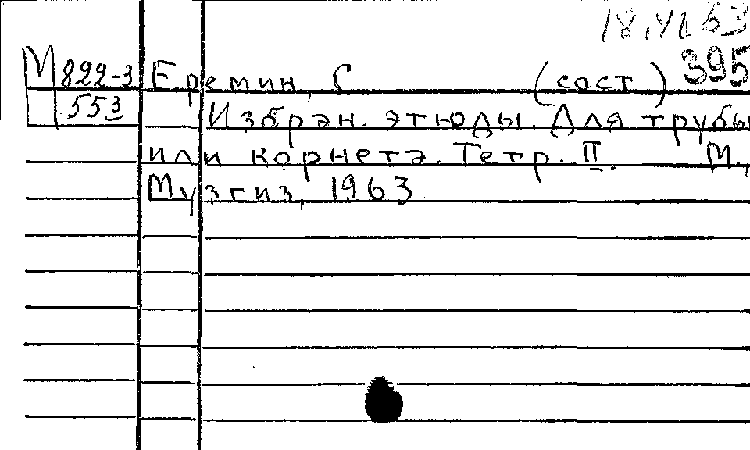 18.VI.63
395
М 822-3 Еремин, С (сост)
553 Избран. этюды. Для трубы
или корнета. Тетр. II. М.,
Музгиз, 1963